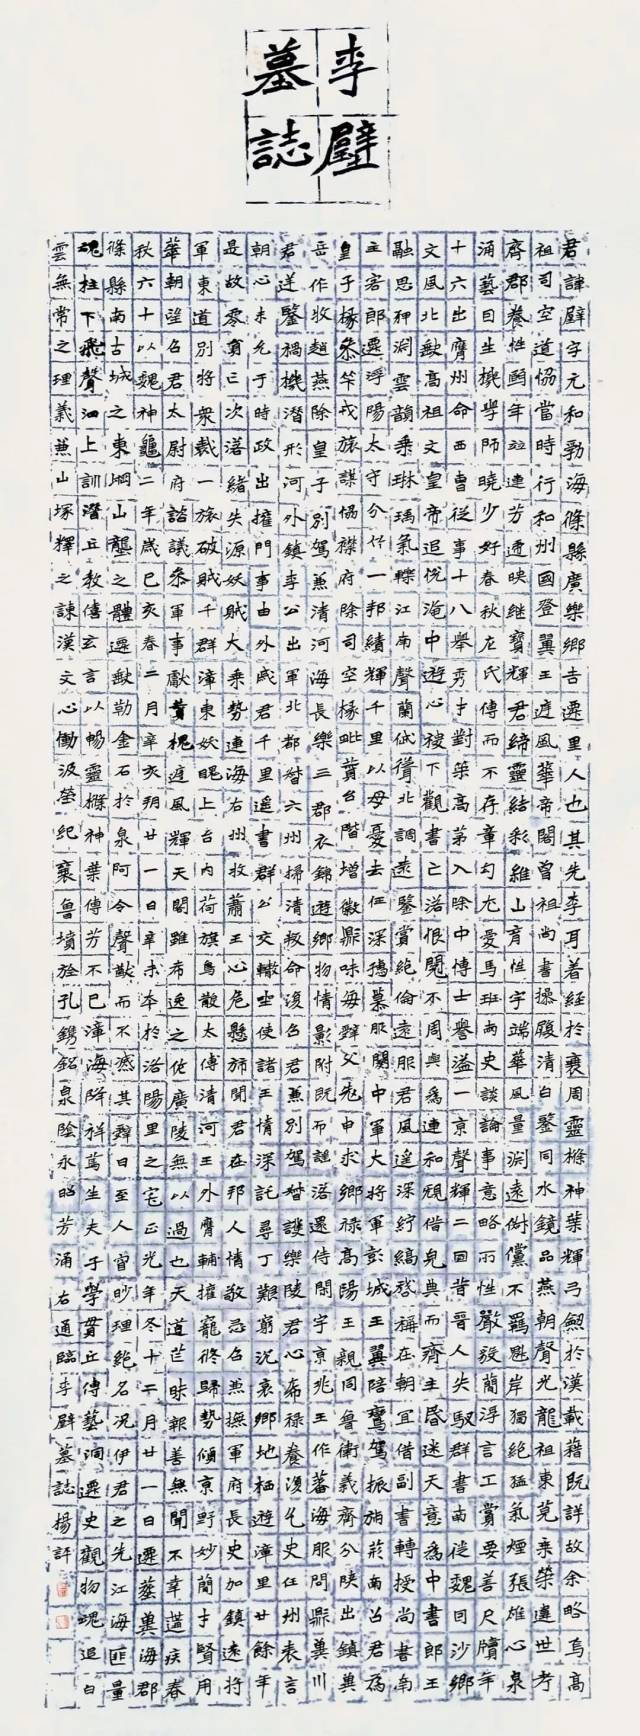 李璧
墓誌
君諱璧字元和勃海條縣廣樂鄉吉遷里人也其先李耳著經於襄周靈櫾神葉輝弓劍於漢載藉既詳故余略焉高
祖司空道協當時行和州國登翼王遅風華帝閣曾祖尚書操履清白鑒同水鏡品燕朝聲光龍祖東莞乘榮違世考
齊郡養性頤年竝連芳遞映继寶輝君締靈結彩維山育性宇端華風量淵遠倜儻不羈魁岸獨絕猛氣煙張雄心泉
涌藝曰生機學師曉少好春秋左氏傳而不存章勾尤愛馬班兩史談論事意略所性嚴毅簡浮言工賞要善尺牘年
十六出膺州命西曹從事十八舉秀才對策高第入除中博士譽溢一京聲輝二國昔晉人失馭群書南徙魏因沙鄉
文風北缺高祖文皇帝追悅淹中遊心稷下觀書亡落恨閱不周與為連和規借完典而齊主昏迷天意為中書郎王
融思狎淵雲韻乘琳瑀氣轢江南聲蘭岱聳北調遠鑒賞絕倫遠服君風遥深紵縞啓稱在朝宜借副書轉授尚書南
主客郎遷浮陽太守分竹一邦績輝千里以母憂去任深德慕服闋中軍大將軍彭城王翼陪鸞駕振旅荊南召君為
皇子掾參竿戎旅謀協襟府除司空掾毗贊台階增徽鼎味每辤父老申求鄉祿高陽王親同魯衛義齊分陝出鎮冀
岳作牧趙燕除皇子別駕兼清河海長樂三郡衣錦遊鄉物情影附既而謠落還侍閤宇京兆王作蕃海服問鼎冀川
君逆鑒禍機潛形河外鎮李公出軍北都督六州掃清叛命復召君兼別駕督護樂陵君心希祿養復乞史任州表言
朝心未允于時政出擁門事由外戚君千里遥書群公交轍坐使諸王情深託尋丁艱窮沉哀鄉地栖遊漳里廿餘年
是故零賓亡次落緒失源妖賊大乘勢連海右州牧蕭王心危懸旆聞君在邦人情敬忌召兼撫軍府長史加鎮遠將
軍東道別將衆裁一旅破賊千群漳東妖氓上台內荷旗鳥散太傅清河王外膺輔擁寵脩歸勢傾京野妙簡才賢用
華朝望召君太尉府諮議參軍事獻贊槐遅風輝天閣雖布逸之佐廣陵無以過也天道茫昧報善無聞不幸遘疾春
秋六十以魏神龜二年歲已亥春二月辛亥朔廿一日辛未卒於洛陽里之宅正光年冬十二月廿一日遷葬冀海郡
條縣南古城之東堈山壟之體遷缺勒金石於泉阿令聲猷而不滅其辤曰至人眇理絕名况伊君之先江海匪量
魂柱下飛聲泗上訓潛丘教僖玄言以暢靈櫾神葉傳芳不已漳海降祥萬生夫子學貫丘傳藝洞遷史觀物瑰追白
雲無常之理義兼山塚釋之諫漢文心慟汲塋紀襄魯墳發孔鐫銘泉陰永昭芳涌右通臨李璧墓誌楊詳